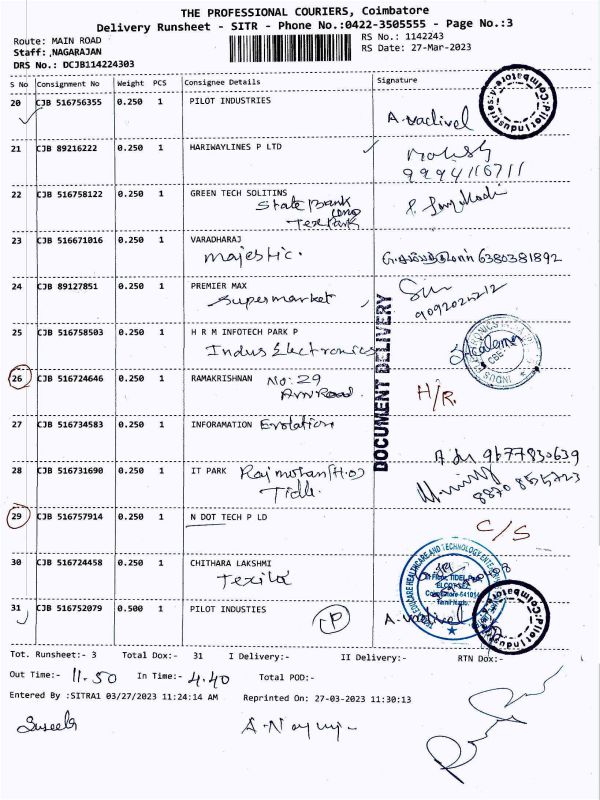 THE PROFESSIONAL COURIERS, Coimbatore
Delivery Runsheet - SITR - Phone No.:0422-3505555 - Page No.:3
Route: MAIN ROAD
Staff: ,NAGARAJAN
DRS No.: DCJB114224303
RS No.: 1142243
RS Date: 27-Mar-2023
S No Consignment No Weight PCS Consignee Details Signature
20 CJB 516756355 0.250 1 PILOT INDUSTRIES
A. vadivel
Pilot Industries Coimbatore
21 CJB 89216222 0.250 1 HARIWAYLINES P LTD
22 CJB 516758122 0.250 1 GREEN TECH SOLITINS
State Bank
Tex Park
23 CJB 516671016 0.250 1 VARADHARAJ
majestic. 6380381892
24 CJB 89127851 0.250 1 PREMIER MAX
Supermarket
25 CJB 516758503 0.250 1 H R M INFOTECH PARK P
Indus Electronics
DOCUMENT DELIVERY
26 CJB 516724646 0.250 1 RAMAKRISHNAN No: 29
H/R.
27 CJB 516734583 0.250 1 INFORAMATION
9677830639
28 CJB 516731690 0.250 1 IT PARK Rajmohan (H.O)
Tidle.
29 CJB 516757914 0.250 1 N DOT TECH P LD
C/S
30 CJB 516724458 0.250 1 CHITHARA LAKSHMI
31 CJB 516752079 0.500 1 PILOT INDUSTIES
P A. vadivel
Pilot Industries Coimbatore
Tot. Runsheet:- 3 Total Dox:- 31 I Delivery:- II Delivery:- RTN Dox:-
Out Time:- 11.50 In Time:- 4.40 Total POD:-
Entered By :SITRA1 03/27/2023 11:24:14 AM Reprinted On: 27-03-2023 11:30:13